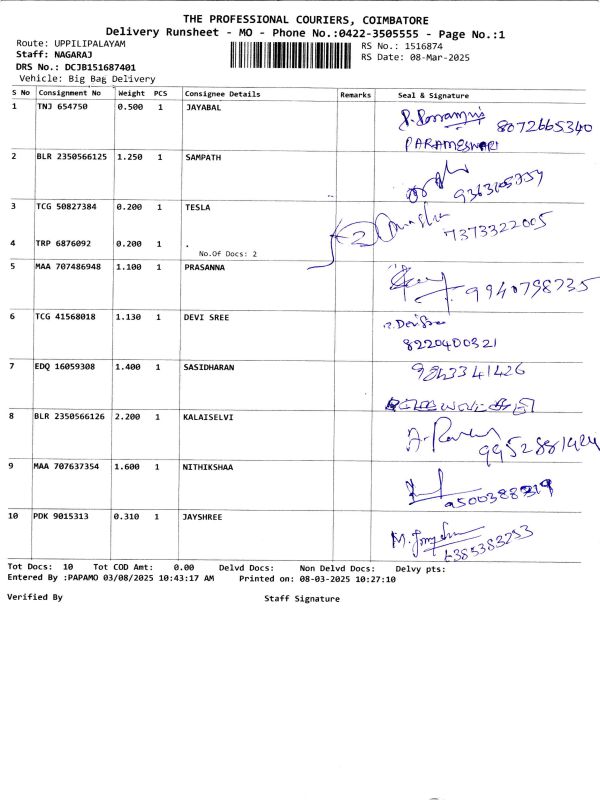 THE PROFESSIONAL COURIERS, COIMBATORE
Delivery Runsheet - MO - Phone No.:0422-3505555 - Page No.:1
Route: UPPILIPALAYAM
RS No.: 1516874
Staff: NAGARAJ
RS Date: 08-Mar-2025
DRS No.: DCJB151687401
Vehicle: Big Bag Delivery
S No Consignment No Weight PCS Consignee Details Remarks Seal & Signature
1 TNJ 654750 0.500 1 JAYABAL
8072665340
PARAMESWARI
2 BLR 2350566125 1.250 1 SAMPATH
3 TCG 50827384 0.200 1 TESLA
2 7373322005
4 TRP 6876092 0.200 1 .
No.Of Docs: 2
5 MAA 707486948 1.100 1 PRASANNA
9940798735
6 TCG 41568018 1.130 1 DEVI SREE
8220400321
7 EDQ 16059308 1.400 1 SASIDHARAN
9843341426
8 BLR 2350566126 2.200 1 KALAISELVI
9952881924
9 MAA 707637354 1.600 1 NITHIKSHAA
10 PDK 9015313 0.310 1 JAYSHREE
6385383253
Tot Docs: 10 Tot COD Amt: 0.00 Delvd Docs: Non Delvd Docs: Delvy pts:
Entered By :PAPAMO 03/08/2025 10:43:17 AM Printed on: 08-03-2025 10:27:10
Verified By Staff Signature